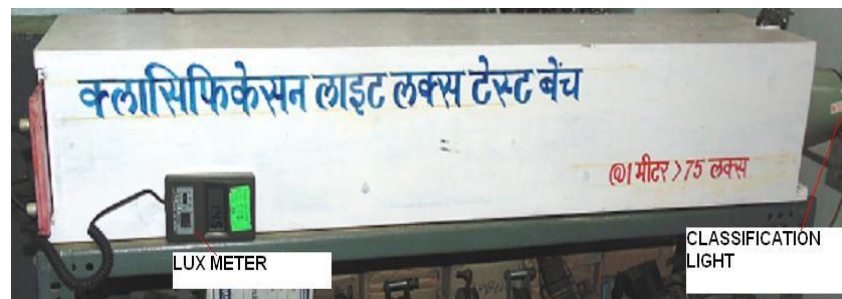 क्लासिफिकेसन लाइट लक्स टेस्ट बेंच
@1 मीटर >75 लक्स
LUX METER
CLASSIFICATION
LIGHT